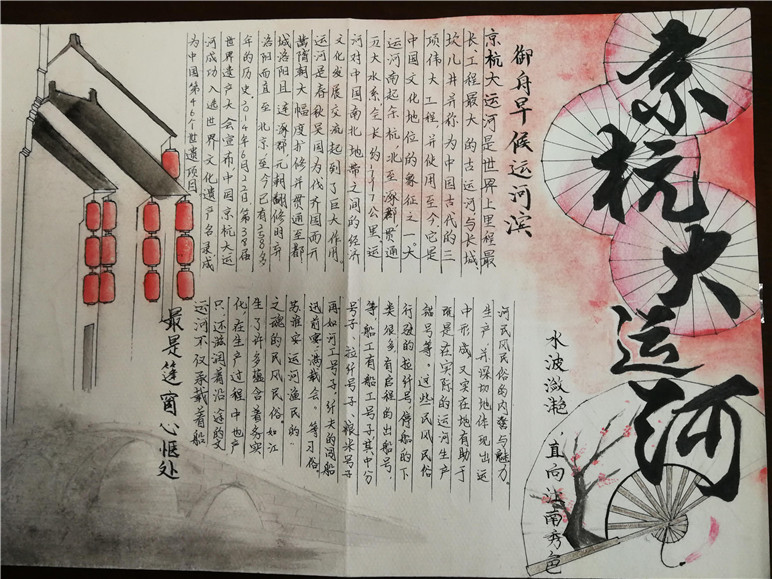 京杭大运河
御舟早候运河滨
京杭大运河是世界上里程最
长、工程最大的古运河与长城、
坎儿井并称为中国古代的三
项伟大工程,并使用至今它是
中国文化地位的象征之一。大
运河南起余杭,北至涿郡贯通
五大水系全长约1797公里,运
河对中国南北地带之间的经济
文化发展交流起到了巨大作用。
运河是春秋吴国为伐齐国而开
凿,隋朝大幅度扩修并贯通至都
城洛阳且连涿郡元朝翻修时弃
洛阳而直至北京,至今已有2500多
年的历史。2014年6月22日第38届
世界遗产大会宣布中国京杭大运
河成功入选世界文化遗产名录,成
为中国第46个世遗项目。
水波潋滟,直向江南秀色
最是篷窗心惬处
运河不仅承载着船
只,还滋润着沿途的文
化,在生产过程中也产
生了许多蕴含着务实
之魂的民风民俗。如江
苏淮安运河渔民的
迅前宴、满载会。等习俗
再如河工号子,纤夫的闯船
号子、拉纤号子、粮米号子
等,船工有船工号子,其中分
类很多有启程的出船号,
行驶的拉纤号、停船的下
船号等。这些民风民俗
就是在实际的运河生产
中形成又实在地有助于
生产,并深切地体现出运
河民风民俗的内容与魅力。